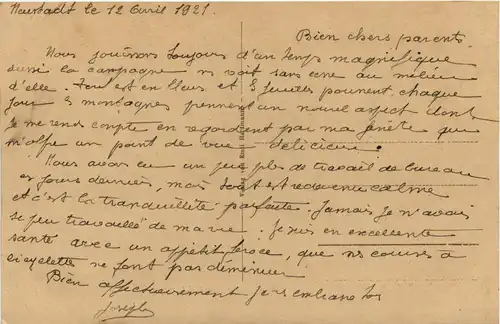 Neustadt le 12 Avril 1921.
Bien chers parents.
Nous jouissons toujours d'un temps magnifique
aussi la campagne ns voit sans cesse au milieu
d'elle. Tout est en fleurs et les feuilles poussent, chaque
jour les montagnes prennent un nouvel aspect dont
je me rends compte en regardant par ma fenêtre qui
m'offre un point de vue délicieux.
Nous avons eu un peu plus de travail de bureau
ces jours derniers, mais tout est redevenu calme
et c'est la tranquillité parfaite. Jamais je n'avais
si peu travaillé de ma vie. Je suis en excellente
santé avec un appétit féroce, que nos courses à
bicyclette ne font pas diminuer.
Bien affectueusement je vs embrasse tos
Joseph